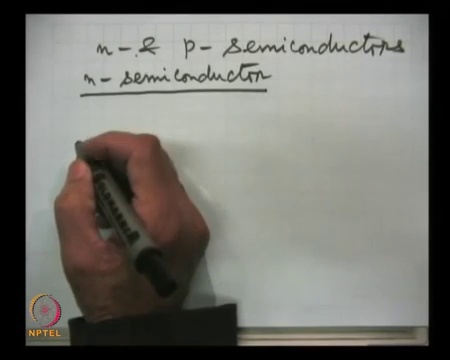 n- & p- semiconductors
n- semiconductor
NPTEL